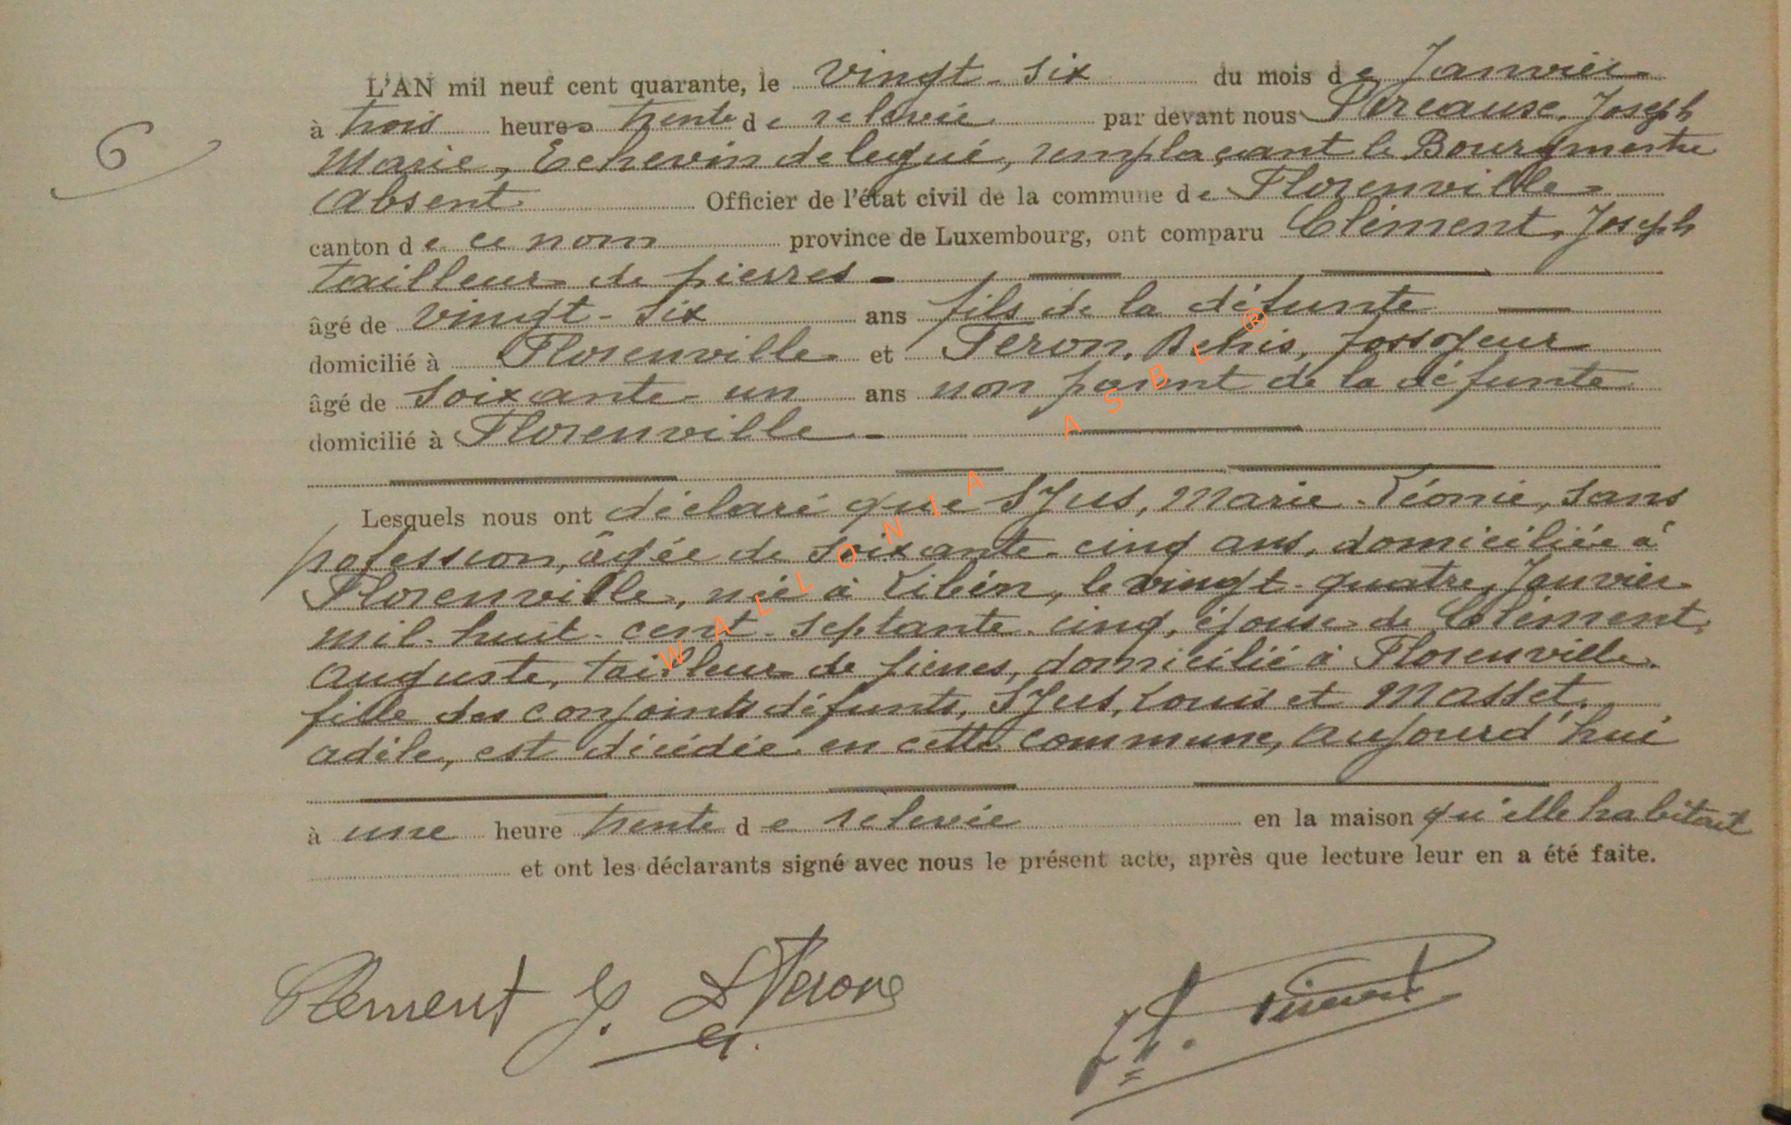 6
L'AN mil neuf cent quarante, le vingt-six du mois de Janvier
à trois heures trente de relevée par devant nous Joseph
Marie, Echevin delegué, remplaçant le Bourgmestre
absent Officier de l'état civil de la commune de Florenville
canton de ce nom province de Luxembourg, ont comparu Clément, Joseph
tailleur de pierres
âgé de vingt-six ans fils de la défunte
domicilié à Florenville et Feron, fossoyeur
âgé de soixante un ans non parent de la défunte
domicilié à Florenville
Lesquels nous ont déclaré que Marie-Léonie, sans
pofession, âgée de soixante-cinq ans, domiciliée à
Florenville, née à Libin, le vingt-quatre Janvier
mil-huit-cent-septante-cinq, épouse de Clément,
auguste, tailleur de pierres, domicilié à Florenville,
fille des conjoints défunts, Louis et Masset,
adèle, est décédée en cette commune, aujourd'hui
à une heure trente de relevée en la maison qu'elle habitait
et ont les déclarants signé avec nous le présent acte, après que lecture leur en a été faite.
Clement J.
WALLONIA ASBL ®